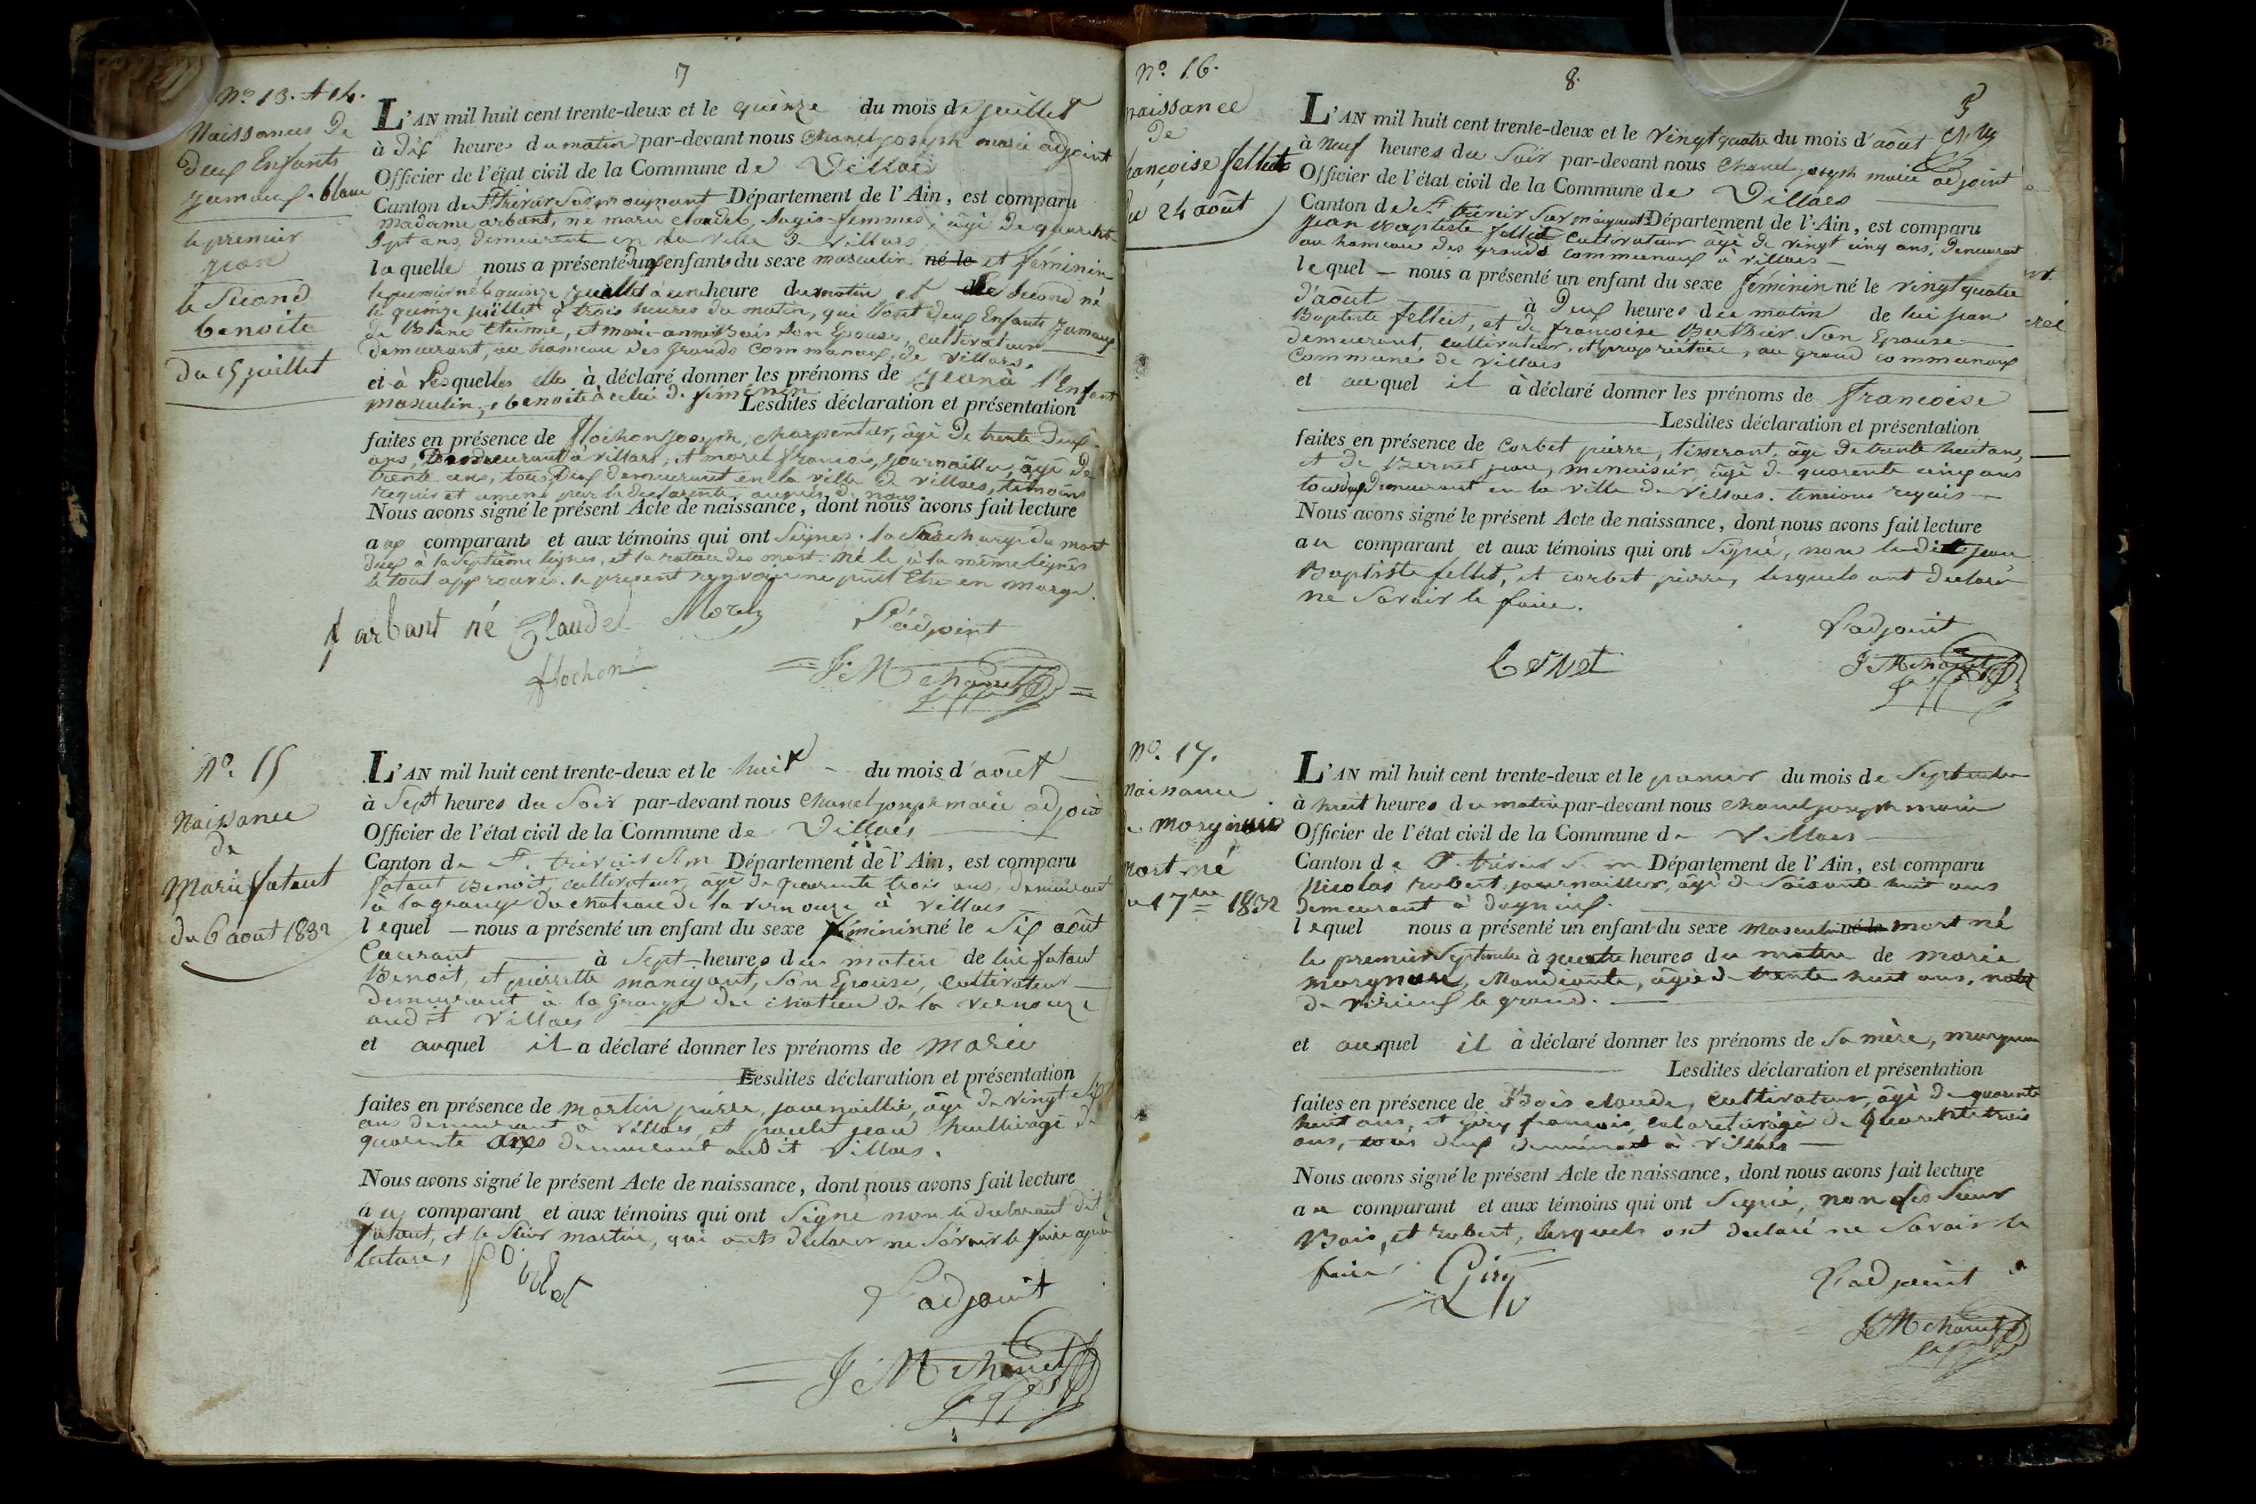 7
N° 13. et 14.
Naissances de
deux Enfants
jumeaux. blanc
le premier
jean
le Second
benoite
du 15 juillet
L'AN mil huit cent trente-deux et le quinze du mois de juillet
à dix heures du matin par-devant nous chanel joseph marie adjoint
Officier de l'état civil de la Commune de Villars
Canton de St trivier Sur moignant Département de l'Ain, est comparu
madame arbant, né marie claudel, Sagis-femmes, âgé de quarente
Sept ans, demeurante en la ville de villars
laquelle nous a présenté deux enfants du sexe masculin né le et féminin
le premier né le quinze juillet à une heure du matin et le Second né
le quinze juillet à trois heures du matin, qui Sont deux Enfants Jumaux
de Blanc Etienne, et marie anne Bois Son Epouse, cultivateur
demeurant, au hameau des Grands Communaux, de Villars.
et à lesquelles elle à déclaré donner les prénoms de jean à l'Enfant
masculin, benoite à celui de féminin Lesdites déclaration et présentation
faites en présence de flochon joseph, charpentier, âgé de trente deux
ans, demeurant à Villars, et morel françois, journaillier, âgé de
trente ans, tous deux demeurant en la ville de villars, témoins
requis et amené par la déclarente auprès de nous.
Nous avons signé le présent Acte de naissance, dont nous avons fait lecture
aux comparants et aux témoins qui ont Signés. la Surcharge du mot
deux à la Septième lignes, et la rature des mots né le à la même lignes
le tout approuvés. le present renvoi ne peut Etre en marge.
f arbant né Claudel Morel L'adjoint
flochon J M chanel
N° 15
Naissance
de
Marie fatout
du 6 août 1832
L'AN mil huit cent trente-deux et le huit du mois d'août
à Sept heures du Soir par-devant nous chanel joseph marie adjoint
Officier de l'état civil de la Commune de Villars
Canton de St trivier S.m Département de l'Ain, est comparu
fatout Benoit, cultivateur âgé de quarente trois ans, demeurant
à la grange du chateau de la Vernouze à Villars
lequel nous a présenté un enfant du sexe féminin né le Six août
Courant à Sept heures du matin de lui fatout
Benoit, et pierrette manigant, Son Epouse, Cultivateur
demeurant à la Grange du chateau de la Vernouze
audit Villars
et auquel il a déclaré donner les prénoms de marie
Lesdites déclaration et présentation
faites en présence de martin pierre, journaillier, âgé de vingt Six
ans demeurant à Villars, et poulet jean âgé de
quarente ans demeurant audit Villars.
Nous avons signé le présent Acte de naissance, dont nous avons fait lecture
au comparant et aux témoins qui ont Signé non le declarant dit
fatout, et le Sieur martin, qui onts déclarer ne Savoir le faire après
lecture,
L'adjoint
J M chanel
8.
N° 16.
naissance
de
françoise fellict
du 24 août
L'AN mil huit cent trente-deux et le vingt quatre du mois d'août
à neuf heures du Soir par-devant nous chanel joseph marie adjoint
Officier de l'état civil de la Commune de Villars
Canton de St trivier Sur moignant Département de l'Ain, est comparu
Jean Baptiste fellict Cultivateur âgé de vingt cinq ans, demeurant
au hameau des grands Communaux à villars
lequel nous a présenté un enfant du sexe féminin né le vingt quatre
d'août à Deux heures du matin de lui jean
Baptiste fellict, et de francoise Berthier Son Epouse
demeurant, cultivateur, et propriétaire, au grand communaux
Commune de Villars
et auquel il à déclaré donner les prénoms de francoise
Lesdites déclaration et présentation
faites en présence de Corbet pierre, tisserant, âgé de trente huit ans,
et de Bernet jean, menuisier, âgé de quarente cinq ans
tous deux demeurant en la ville de Villars. temoins requis
Nous avons signé le présent Acte de naissance, dont nous avons fait lecture
au comparant et aux témoins qui ont Signé, non ledit jean
Baptiste fellict, et corbet pierre, lesquels ont déclaré
ne Savoir le faire.
L'adjoint
J M chanel
N° 17.
Naissance
mort né
1 7bre 1832
L'AN mil huit cent trente-deux et le premier du mois de Septembre
à huit heures du matin par-devant nous chanel joseph marie
Officier de l'état civil de la Commune de Villars
Canton de St trivier S. m Département de l'Ain, est comparu
Nicolas trobert journaillier, âgé de Soixante huit ans
demeurant à
lequel nous a présenté un enfant du sexe masculin né le mort né
le premier Septembre à quatre heures du matin de marie
Mandiante, âgée de trente huit ans, natif
de virieux le grand.
et auquel il à déclaré donner les prénoms de Sa mère,
Lesdites déclaration et présentation
faites en présence de Bois claude, Cultivateur, âgé de quarente
huit ans, et giry françois, cabaretier âgé de quarente trois
ans, tous deux demeurant à Villars
Nous avons signé le présent Acte de naissance, dont nous avons fait lecture
au comparant et aux témoins qui ont Signé, non les Sieur
Bois, et trobert, lesquels ont déclaré ne Savoir le
faire. Giry
L'adjoint
J M chanel